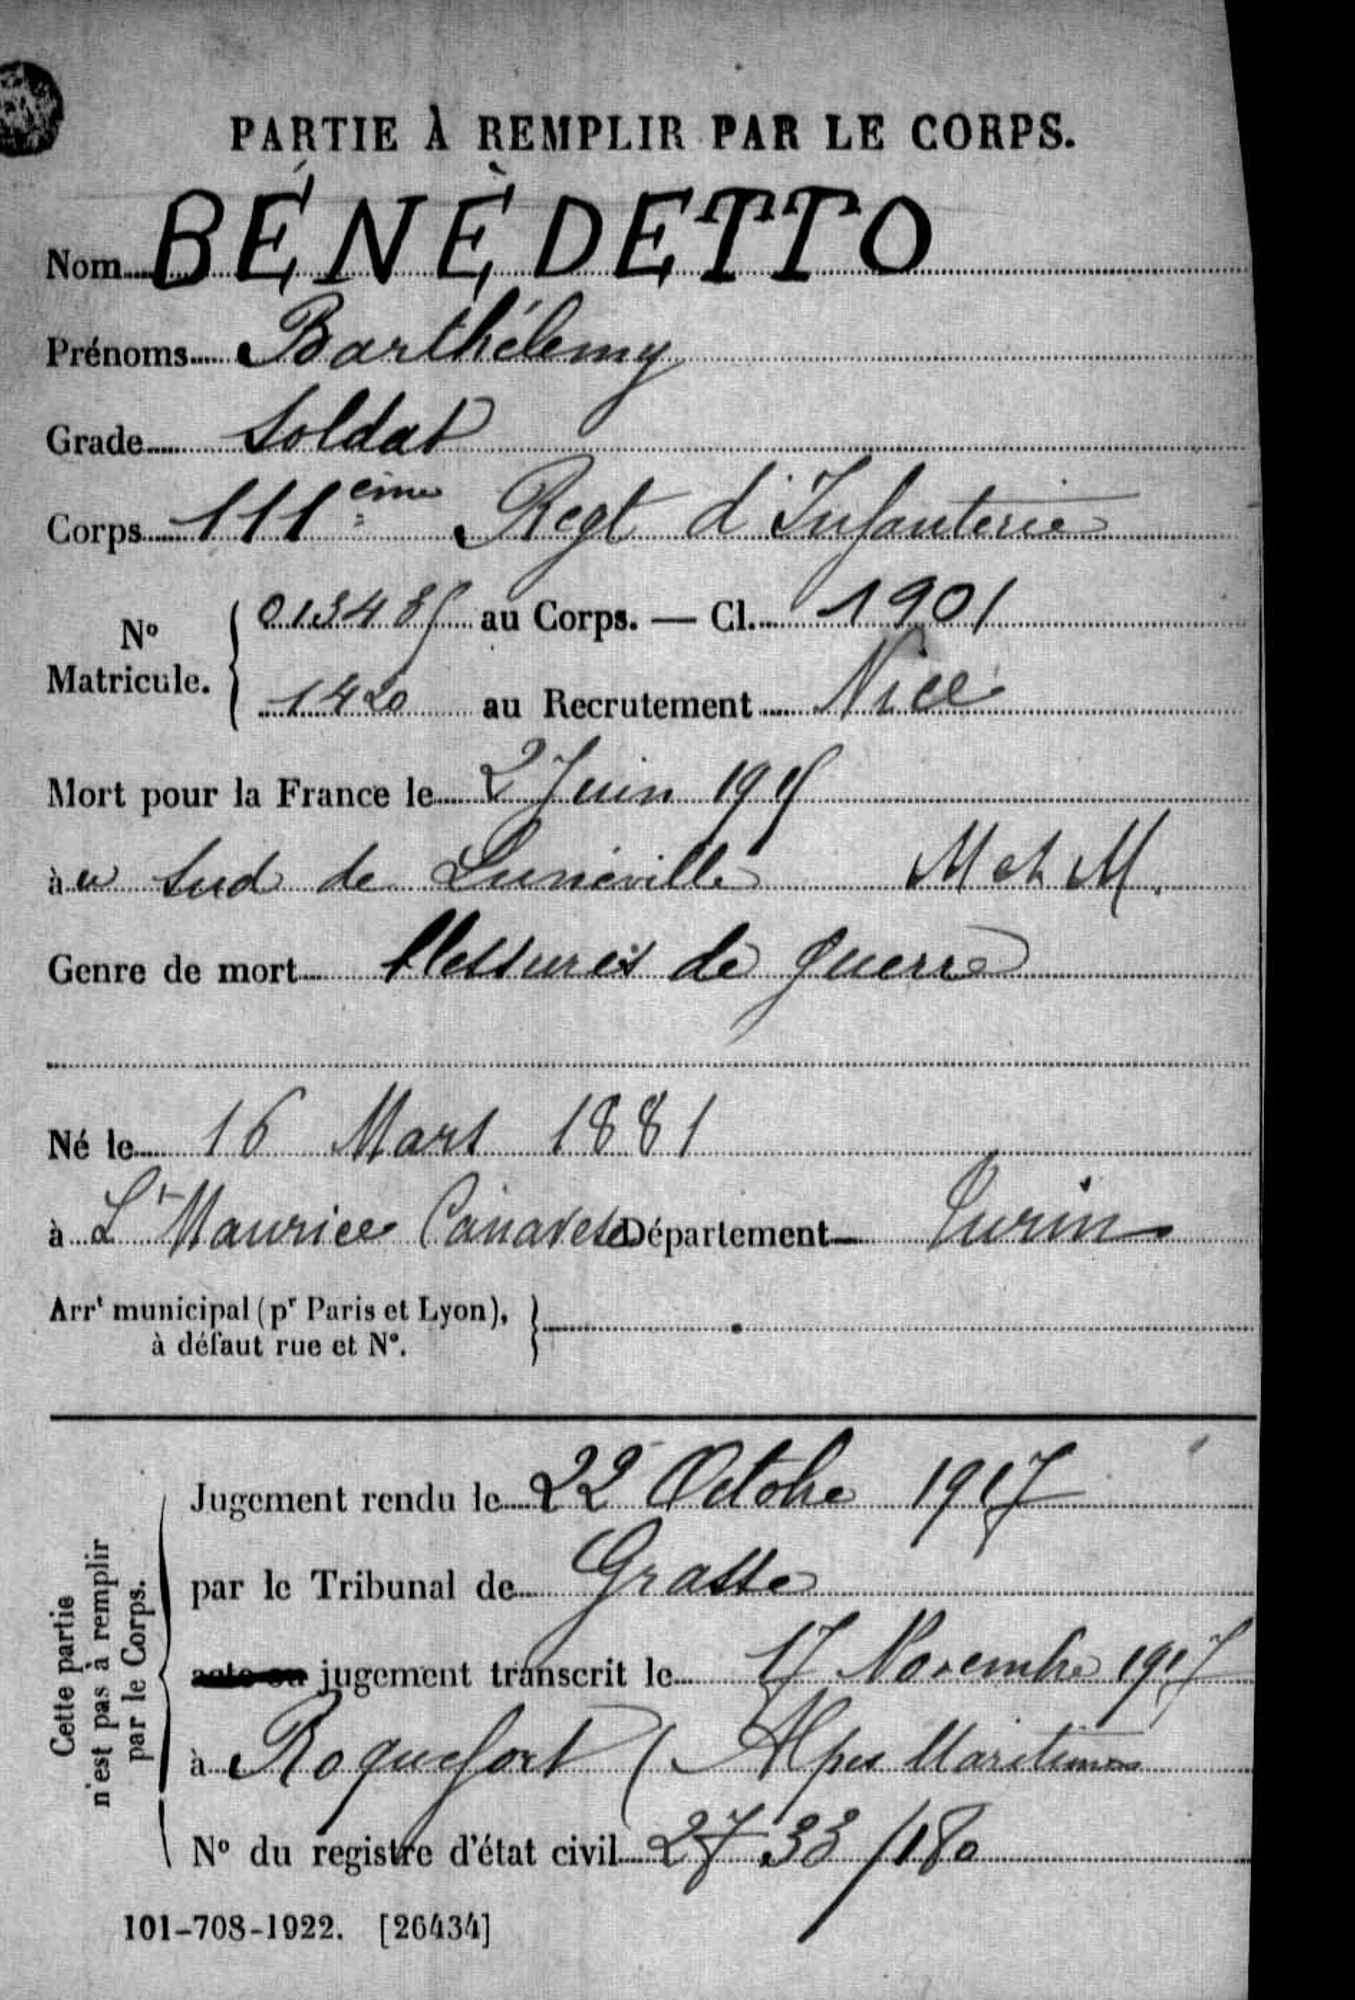 PARTIE À REMPLIR PAR LE CORPS.
Nom BÉNÉDETTO
Prénoms Barthélemy
Grade Soldat
Corps 111ème Regt d'Infanterie
No Matricule. 013485 au Corps. — Cl. 1901
1420 au Recrutement Nice
Mort pour la France le 2 Juin 1915
àu Sud de Lunéville M et M.
Genre de mort blessures de guerre
Né le 16 Mars 1881
à St Maurice Canavese Département Turin
Arrt municipal (pr Paris et Lyon),
à défaut rue et N°.
Cette partie
n'est pas à remplir
par le Corps.
Jugement rendu le 22 Octobre 1917
par le Tribunal de Grasse
acte ou jugement transcrit le 17 Novembre 1917
à Roquefort (Alpes Maritimes
No du registre d'état civil 2733/180
101-708-1922. [26434]